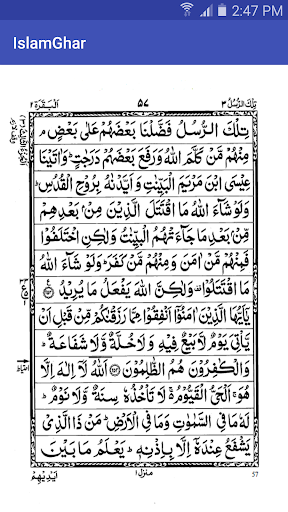 2:47 PM
IslamGhar
تِلْكَ الرُّسُلُ ٣
٥٧
اَلْبَقَرَة ٢
تِلْكَ الرُّسُلُ فَضَّلْنَا بَعْضَهُمْ عَلٰى بَعْضٍ ۘ
مِنْهُمْ مَّنْ كَلَّمَ اللّٰهُ وَرَفَعَ بَعْضَهُمْ دَرَجٰتٍ ؕ وَاٰتَيْنَا
عِيْسَى ابْنَ مَرْيَمَ الْبَيِّنٰتِ وَاَيَّدْنٰهُ بِرُوْحِ الْقُدُسِ ؕ
وَلَوْ شَآءَ اللّٰهُ مَا اقْتَتَلَ الَّذِيْنَ مِنْۢ بَعْدِهِمْ
مِّنْۢ بَعْدِ مَا جَآءَتْهُمُ الْبَيِّنٰتُ وَلٰكِنِ اخْتَلَفُوْا
فَمِنْهُمْ مَّنْ اٰمَنَ وَمِنْهُمْ مَّنْ كَفَرَ ؕ وَلَوْ شَآءَ اللّٰهُ
مَا اقْتَتَلُوْا ۫ وَلٰكِنَّ اللّٰهَ يَفْعَلُ مَا يُرِيْدُ ﴿۲۵۳﴾
يٰۤاَيُّهَا الَّذِيْنَ اٰمَنُوْۤا اَنْفِقُوْا مِمَّا رَزَقْنٰكُمْ مِّنْ قَبْلِ اَنْ
يَّاْتِيَ يَوْمٌ لَّا بَيْعٌ فِيْهِ وَلَا خُلَّةٌ وَّلَا شَفَاعَةٌ ؕ
وَالْكٰفِرُوْنَ هُمُ الظّٰلِمُوْنَ ﴿۲۵۴﴾ اَللّٰهُ لَاۤ اِلٰهَ اِلَّا
هُوَ ۚ اَلْحَيُّ الْقَيُّوْمُ ۚ۬ لَا تَاْخُذُهٗ سِنَةٌ وَّلَا نَوْمٌ ؕ
لَهٗ مَا فِي السَّمٰوٰتِ وَمَا فِي الْاَرْضِ ؕ مَنْ ذَا الَّذِيْ
يَشْفَعُ عِنْدَهٗۤ اِلَّا بِاِذْنِهٖ ؕ يَعْلَمُ مَا بَيْنَ
اَيْدِيْهِمْ
منزل ١
57